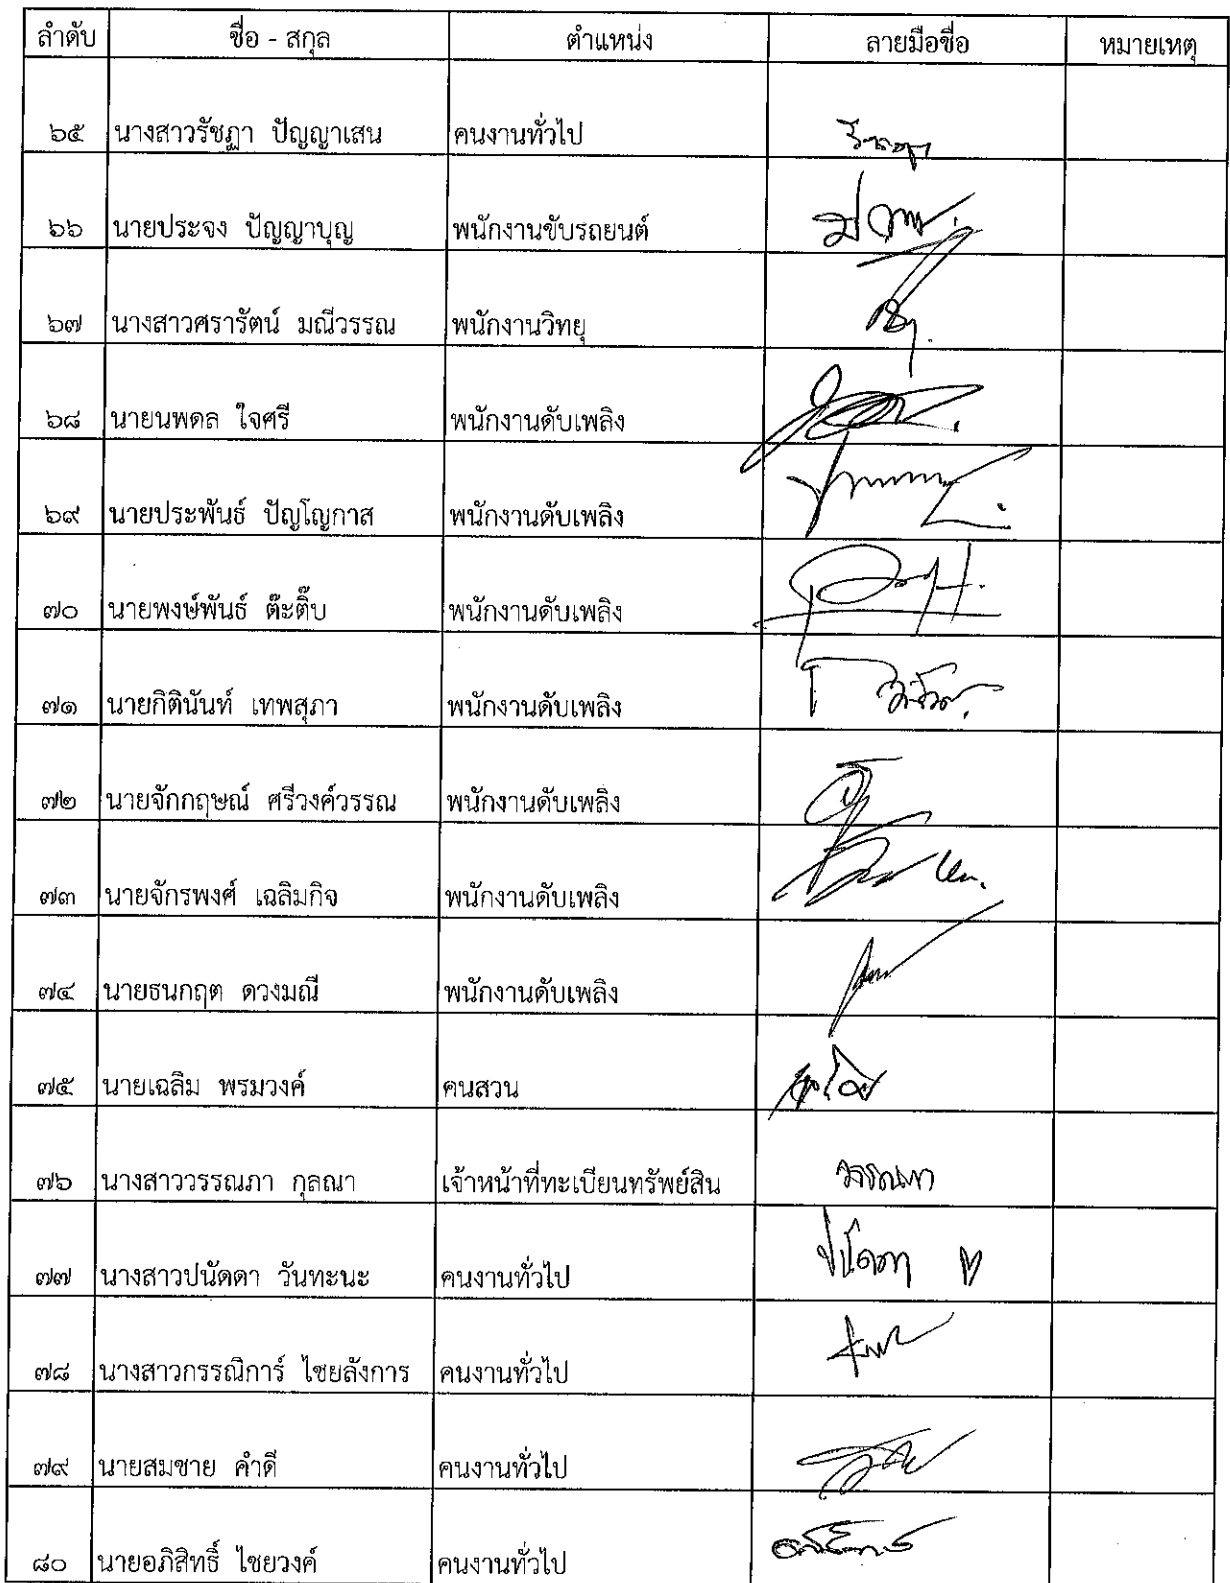 ลำดับ ชื่อ - สกุล ตำแหน่ง ลายมือชื่อ หมายเหตุ
๖๕ นางสาวรัชฏา ปัญญาเสน คนงานทั่วไป
๖๖ นายประจง ปัญญาบุญ พนักงานขับรถยนต์
๖๗ นางสาวศรารัตน์ มณีวรรณ พนักงานวิทยุ
๖๘ นายนพดล ใจศรี พนักงานดับเพลิง
๖๙ นายประพันธ์ ปัญโญกาส พนักงานดับเพลิง
๗๐ นายพงษ์พันธ์ ต๊ะติ๊บ พนักงานดับเพลิง
๗๑ นายกิตินันท์ เทพสุภา พนักงานดับเพลิง
๗๒ นายจักกฤษณ์ ศรีวงค์วรรณ พนักงานดับเพลิง
๗๓ นายจักรพงศ์ เฉลิมกิจ พนักงานดับเพลิง
๗๔ นายธนกฤต ดวงมณี พนักงานดับเพลิง
๗๕ นายเฉลิม พรมวงค์ คนสวน
๗๖ นางสาววรรณภา กุลณา เจ้าหน้าที่ทะเบียนทรัพย์สิน วรรณภา
๗๗ นางสาวปนัดดา วันทะนะ คนงานทั่วไป ปนัดดา
๗๘ นางสาวกรรณิการ์ ไชยลังการ คนงานทั่วไป
๗๙ นายสมชาย คำดี คนงานทั่วไป
๘๐ นายอภิสิทธิ์ ไชยวงค์ คนงานทั่วไป